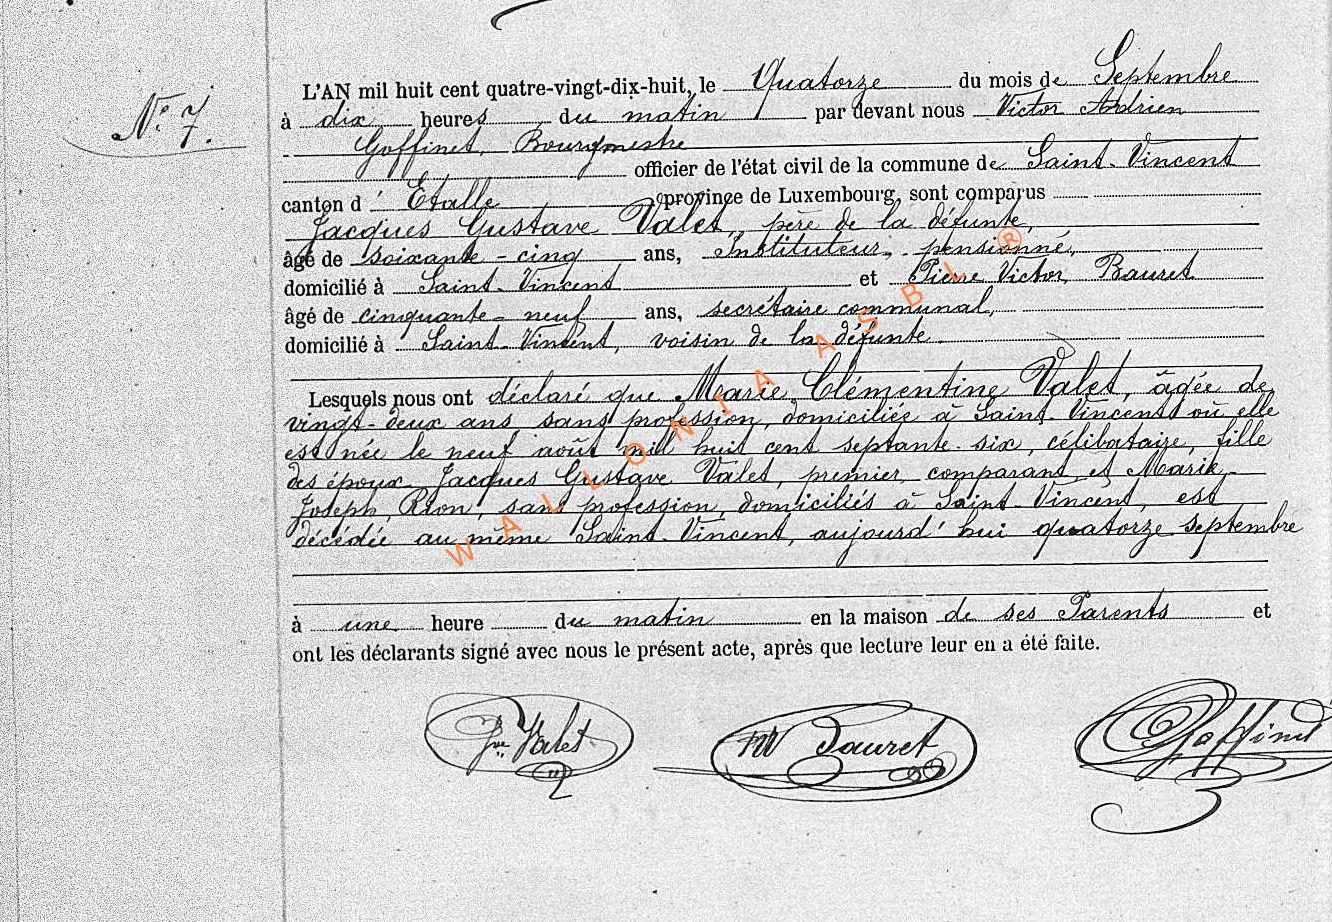 N° 7.
L'AN mil huit cent quatre-vingt-dix-huit, le Quatorze du mois de Septembre
à dix heures du matin par devant nous Victor Adrien
Goffinet, Bourgmestre
officier de l'état civil de la commune de Saint-Vincent
canton d' Etalle province de Luxembourg, sont comparus
Jacques Gustave Valet, père de la défunte,
âgé de soixante-cinq ans, Instituteur pensionné,
domicilié à Saint-Vincent et Pierre Victor Bauret
âgé de cinquante-neuf ans, secrétaire communal,
domicilié à Saint-Vincent, voisin de la défunte
Lesquels nous ont déclaré que Marie Clémentine Valet, âgée de
vingt-deux ans, sans profession, domiciliée à Saint-Vincent où elle
est née le neuf août mil huit cent septante-six, célibataire, fille
des époux Jacques Gustave Valet, premier comparant et Marie-
Joseph Rion, sans profession, domiciliés à Saint-Vincent, est
décédée au même Saint-Vincent, aujourd'hui quatorze septembre
à une heure du matin en la maison de ses Parents et
ont les déclarants signé avec nous le présent acte, après que lecture leur en a été faite.
Valet Bauret Goffinet
WALLONIA ASBL ®